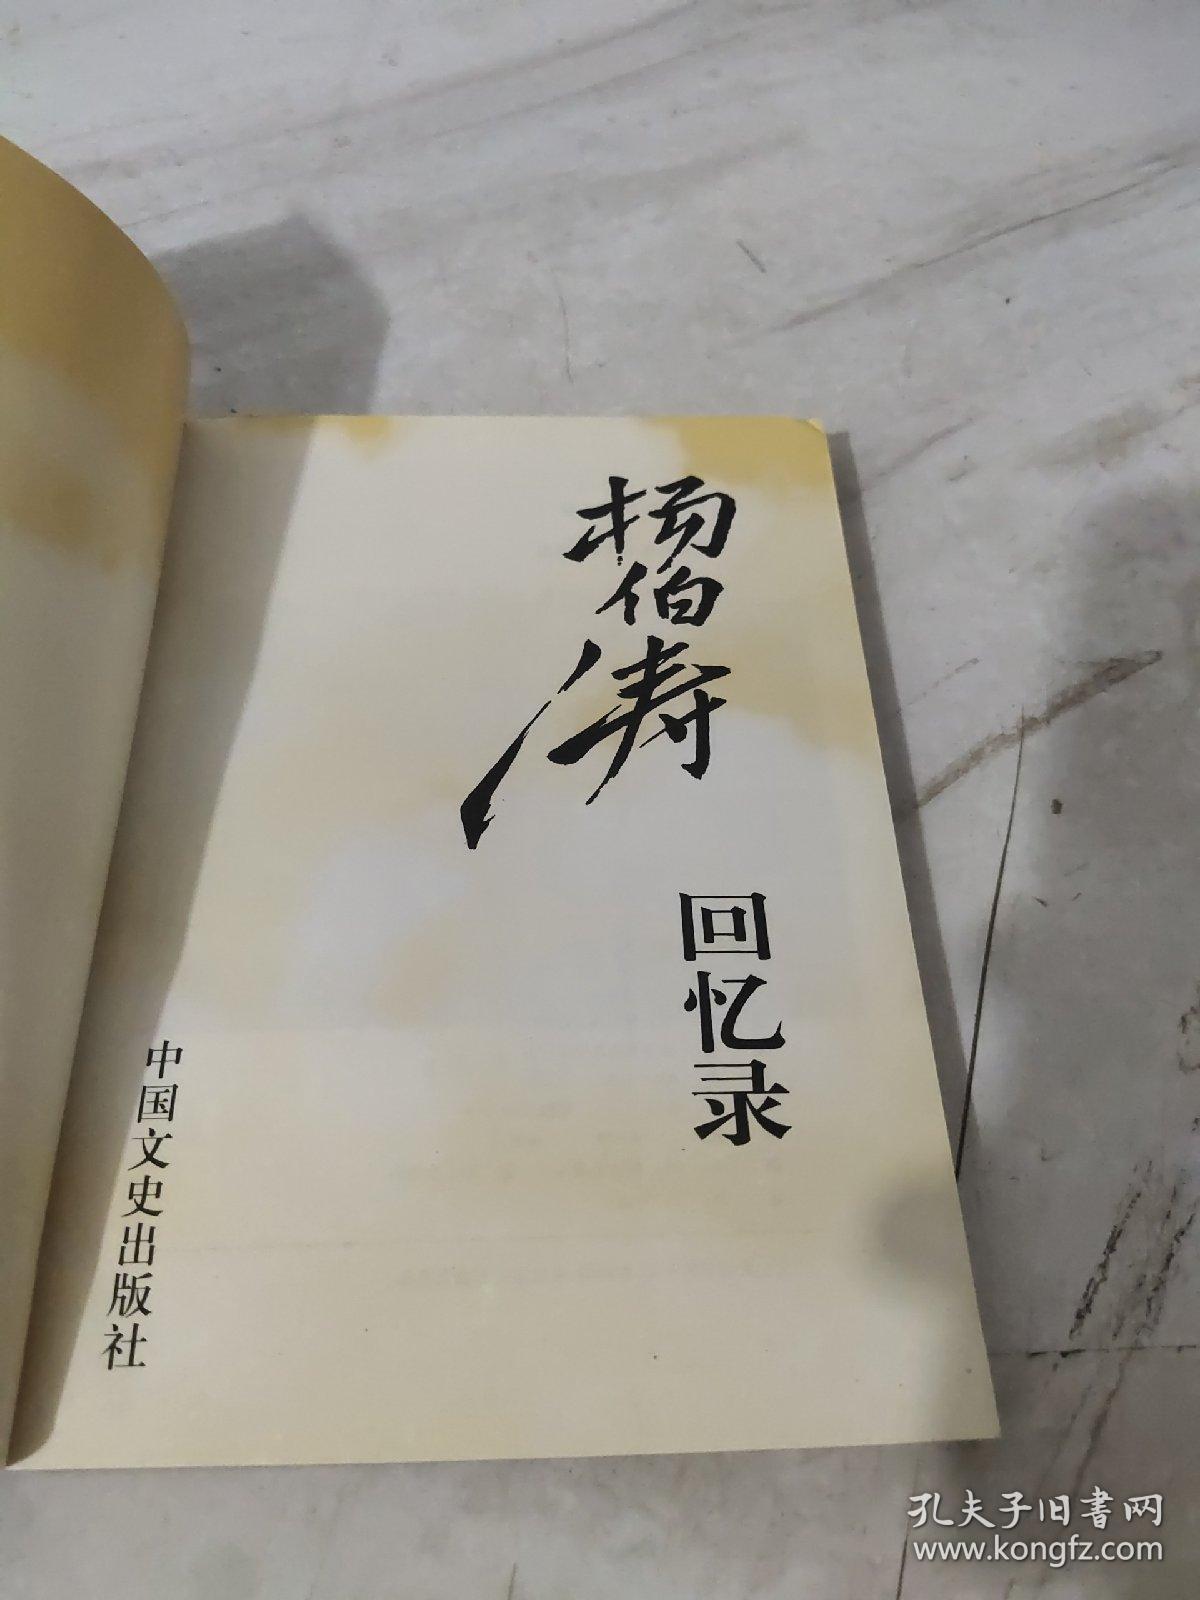 杨伯涛
回忆录
中国文史出版社
孔夫子旧書网
www.kongfz.com